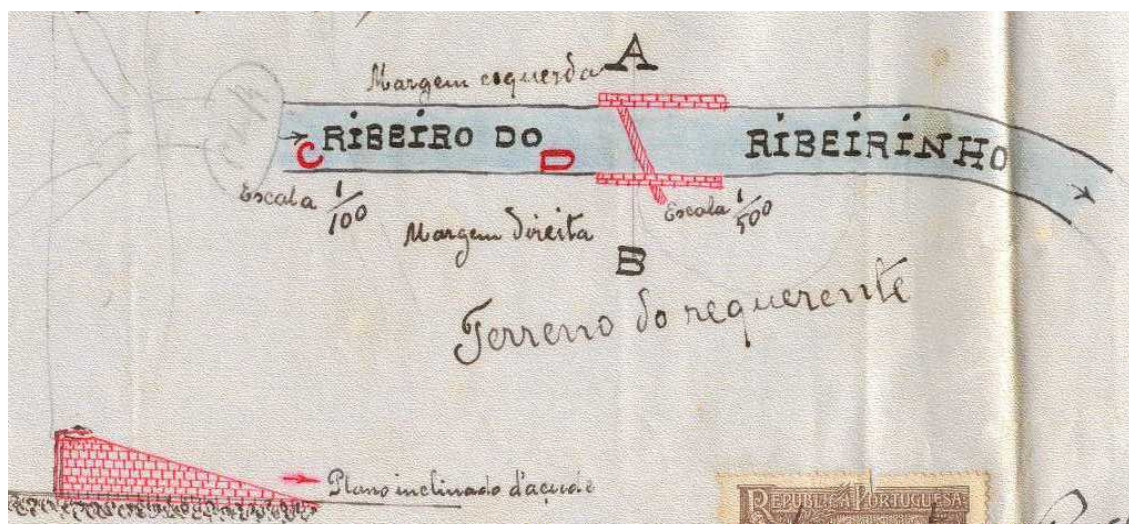 A
Margem esquerda
C RIBEIRO DO D RIBEIRINHO
Escala 1/100
Escala 1/500
Margem direita
B
Terreno do requerente
Plano inclinado d'açude
REPUBLICA PORTUGUESA